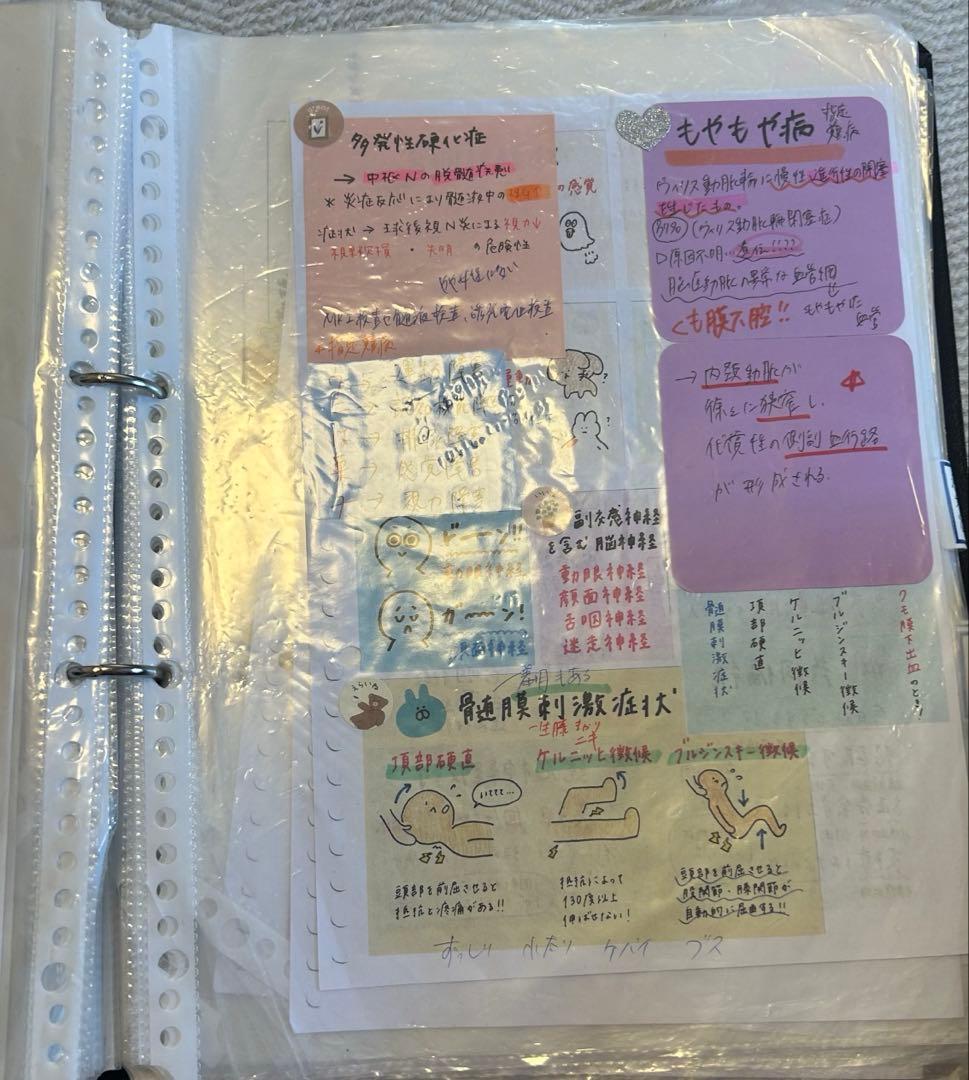 多発性硬化症
→ 中枢Nの脱髄疾患
* 炎症反応により髄液中の
症状 → 球後視N炎による視力↓
視野欠損・失明の危険性
MRI検査や髄液検査、誘発電位検査
指定難病
の感覚
もやもや病
指定
難病
ウィリス動脈輪に慢性進行性の閉塞
生じたもの。
別名 (ウィリス動脈輪閉塞症)
原因不明…遺伝!???
脳底動脈に異常な血管網
くも膜下腔!!
もやもやした
血管
→ 内頚動脈が
徐々に狭窄し、
代償性の側副血行路
が形成される.
→ 感覚障害
→ 視力障害
ドーン!!
動眼神経
カーーン!
副交感神経
を含む脳神経
動眼神経
顔面神経
舌咽神経
迷走神経
クモ膜下出血のとき!
ブルジンスキー徴候
ケルニッヒ徴候
項部硬直
髄膜刺激症状
羞明もある
えらいね
髄膜刺激症状
項部硬直
ケルニッヒ徴候
ブルジンスキー徴候
いてて…
頭部を前屈させると
抵抗と疼痛がある!!
抵抗によって
130度以上
伸ばせない!
頭部を前屈させると
股関節・膝関節が
自動的に屈曲する!!
ずっしり 小太り ケバイ ブス